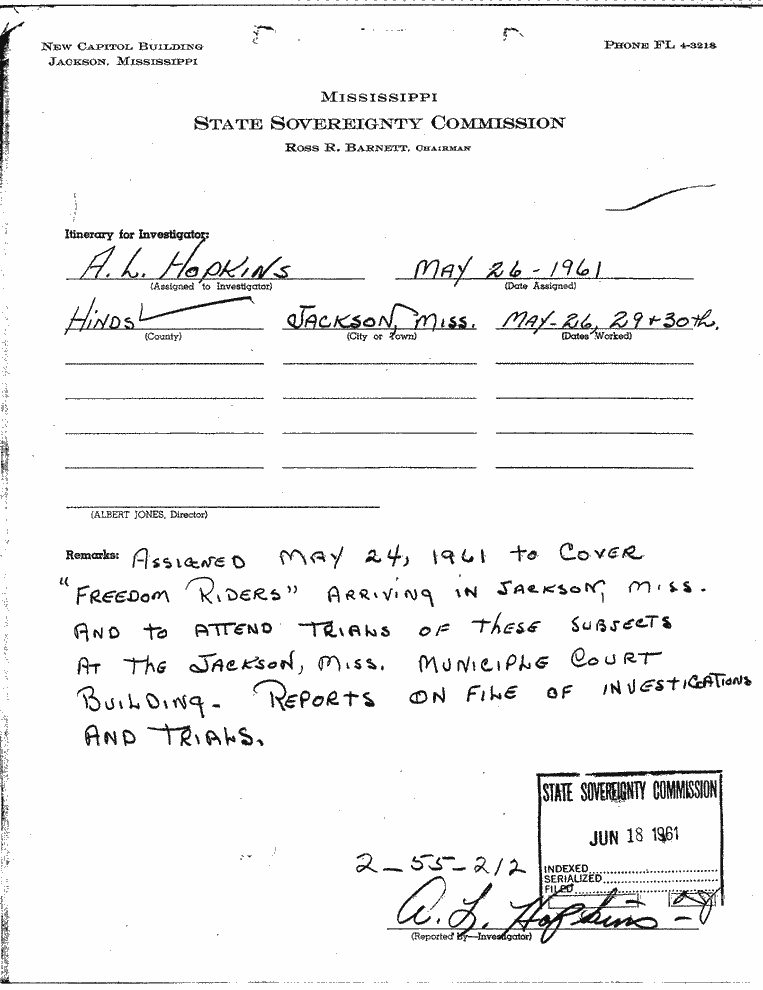 NEW CAPITOL BUILDING
JACKSON, MISSISSIPPI
PHONE FL 4-3218
MISSISSIPPI
STATE SOVEREIGNTY COMMISSION
ROSS R. BARNETT, CHAIRMAN
Itinerary for Investigator:
A. L. HOPKINS MAY 26-1961
(Assigned to Investigator) (Date Assigned)
HINDS JACKSON, MISS. MAY-26, 29+30th.
(County) (City or Town) (Dates Worked)
(ALBERT JONES, Director)
Remarks: ASSIGNED MAY 24, 1961 to COVER
"FREEDOM RIDERS" ARRIVING IN JACKSON, MISS.
AND to ATTEND TRIALS OF THESE SUBJECTS
AT THE JACKSON, MISS. MUNICIPLE COURT
BUILDING. REPORTS ON FILE OF INVESTIGATIONS
AND TRIALS.
STATE SOVEREIGNTY COMMISSION
JUN 18 1961
2-55-212
INDEXED
SERIALIZED
FILED
A. L. Hopkins
(Reported By—Investigator)